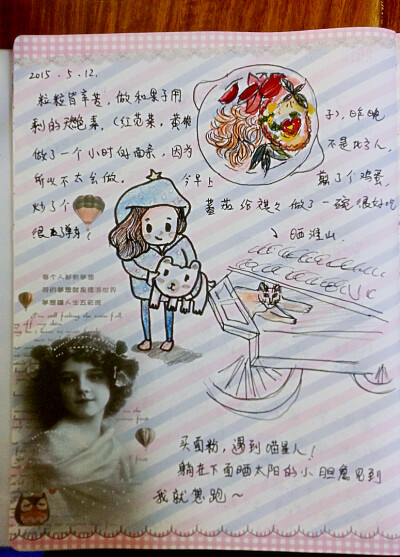 2015.5.12.
粒粒皆辛苦，做和果子用
剩的天然色素。（红苋菜，黄栀
子），昨晚
做了一个小时的面条，因为
不是北方人，
所以不太会做。今早上
煎了个鸡蛋，
炒了个
番茄给祺祺做了一碗很好吃
晒洋山
每个人都有夢想
我的夢想就是環遊世界
夢想讓人生五彩斑
买面粉，遇到喵星人！
躺在下面晒太阳的小胆鬼见到
我就想跑～